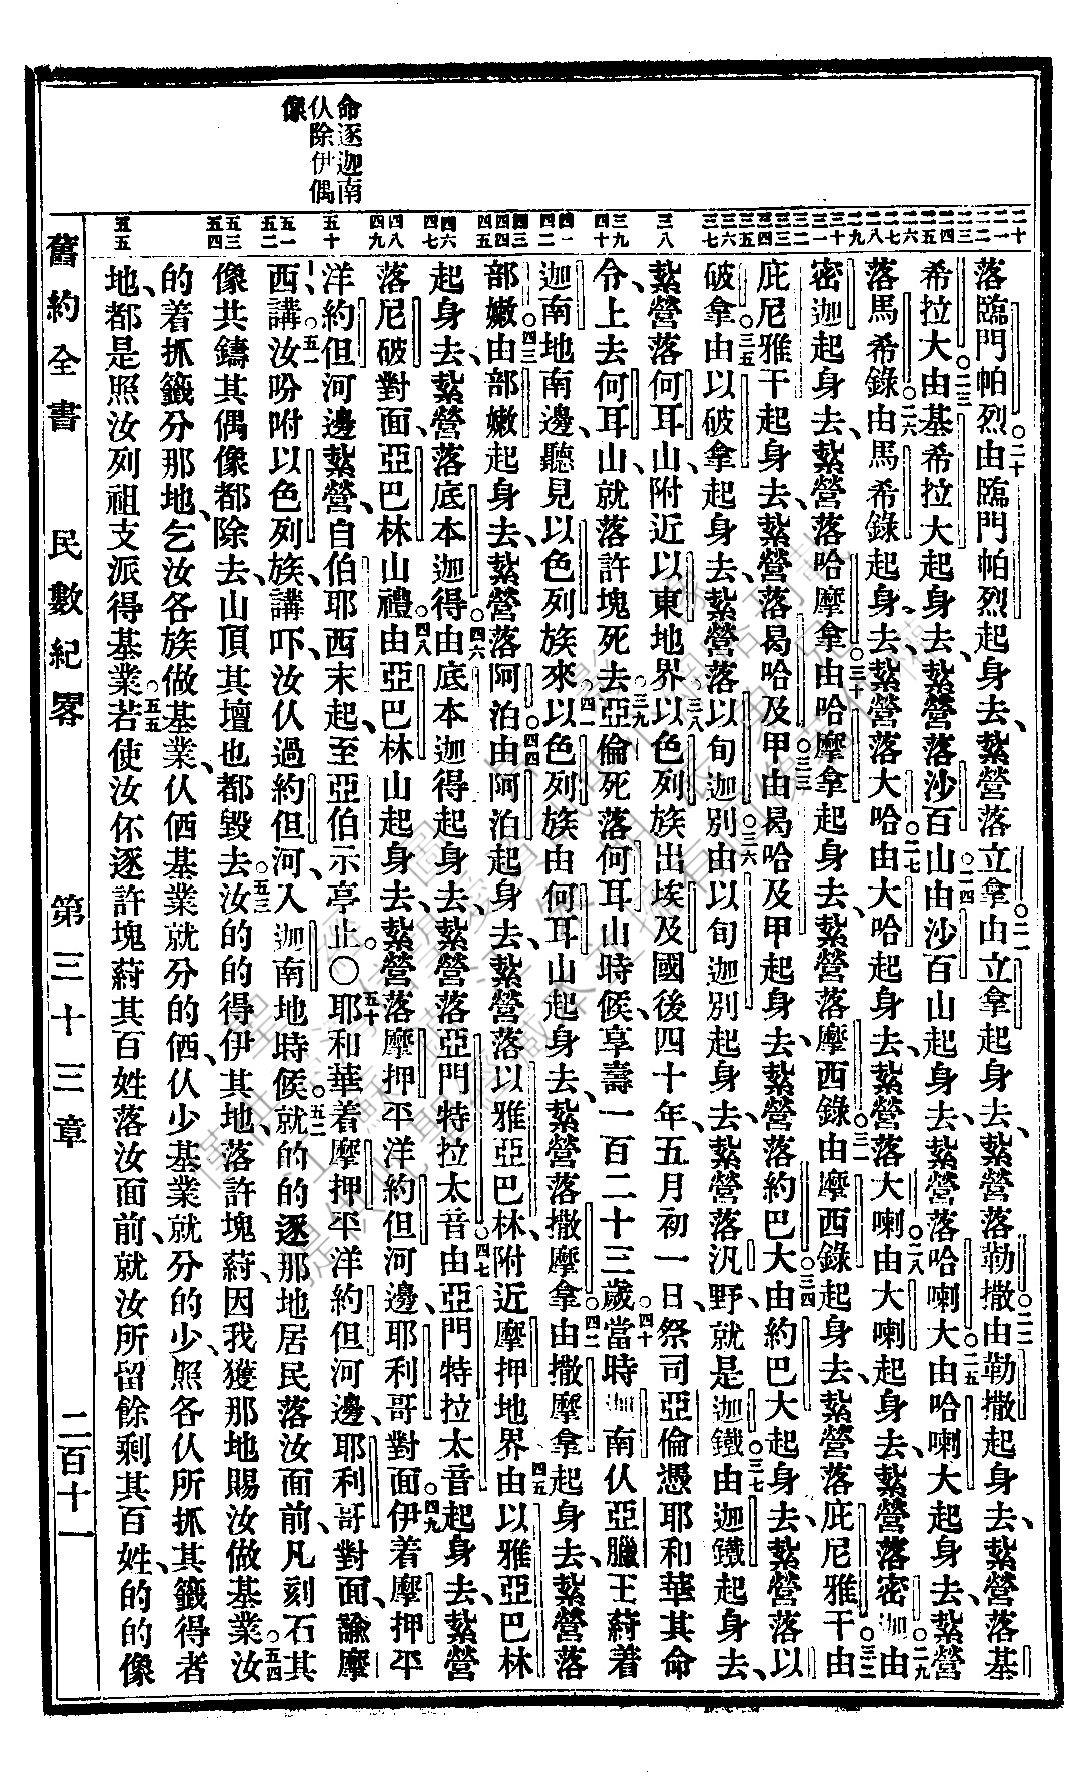 命逐迦南
仈除伊偶
像
二十
二一
二二
二三
二四
二五
二六
二七
二八
二九
三十
三一
三二
三三
三四
三五
三六
三七
三八
三九
四十
四一
四二
四三
四四
四五
四六
四七
四八
四九
五十
五一
五二
五三
五四
五五
落臨門帕烈○二十由臨門帕烈起身去、紮營落立拿○二一由立拿起身去、紮營落勒撒○二二由勒撒起身去、紮營落基
希拉大○二三由基希拉大起身去、紮營落沙百山○二四由沙百山起身去、紮營落哈喇大○二五由哈喇大起身去、紮營
落馬希錄○二六由馬希錄起身去、紮營落大哈○二七由大哈起身去、紮營落大喇○二八由大喇起身去、紮營落密迦○二九由
密迦起身去、紮營落哈摩拿○三十由哈摩拿起身去、紮營落摩西錄○三一由摩西錄起身去、紮營落庇尼雅干○三二由
庇尼雅干起身去、紮營落曷哈及甲○三三由曷哈及甲起身去、紮營落約巴大○三四由約巴大起身去、紮營落以
破拿○三五由以破拿起身去、紮營落以旬迦別○三六由以旬迦別起身去、紮營落汎野、就是迦鐵○三七由迦鐵起身去、
紮營落何耳山、附近以東地界○三八以色列族出埃及國後四十年、五月初一日、祭司亞倫憑耶和華其命
令、上去何耳山、就落許塊死去○三九亞倫死落何耳山時候、享壽一百二十三歲○四十當時迦南仈亞臘王、蒔着
迦南地南邊、聽見以色列族來○四一以色列族由何耳山起身去、紮營落撒摩拿○四二由撒摩拿起身去、紮營落
部嫩○四三由部嫩起身去、紮營落阿泊○四四由阿泊起身去、紮營落以雅亞巴林、附近摩押地界○四五由以雅亞巴林
起身去、紮營落底本迦得○四六由底本迦得起身去、紮營落亞門特拉太音○四七由亞門特拉太音起身去、紮營
落尼破對面、亞巴林山禮○四八由亞巴林山起身去、紮營落摩押平洋、約但河邊、耶利哥對面○四九伊着摩押平
洋、約但河邊紮營、自伯耶西末起、至亞伯示亭止。○五十耶和華着摩押平洋、約但河邊、耶利哥對面、諭摩
西講○五一汝吩咐以色列族、講吓、汝仈過約但河、入迦南地時候○五二就的的逐那地居民落汝面前、凡刻石其
像、共鑄其偶像都除去、山頂其壇也都毀去○五三汝的的得伊其地、落許塊蒔、因我獲那地賜汝做基業○五四汝
的着抓籤分那地、乞汝各族做基業、仈価基業就分的価、仈少基業就分的少、照各仈所抓其籤得者
地、都是照汝列祖支派得基業○五五若使汝伓逐許塊蒔其百姓落汝面前、就汝所留餘剩其百姓、的的像
舊約全書 民數紀畧 第三十三章 二百十一